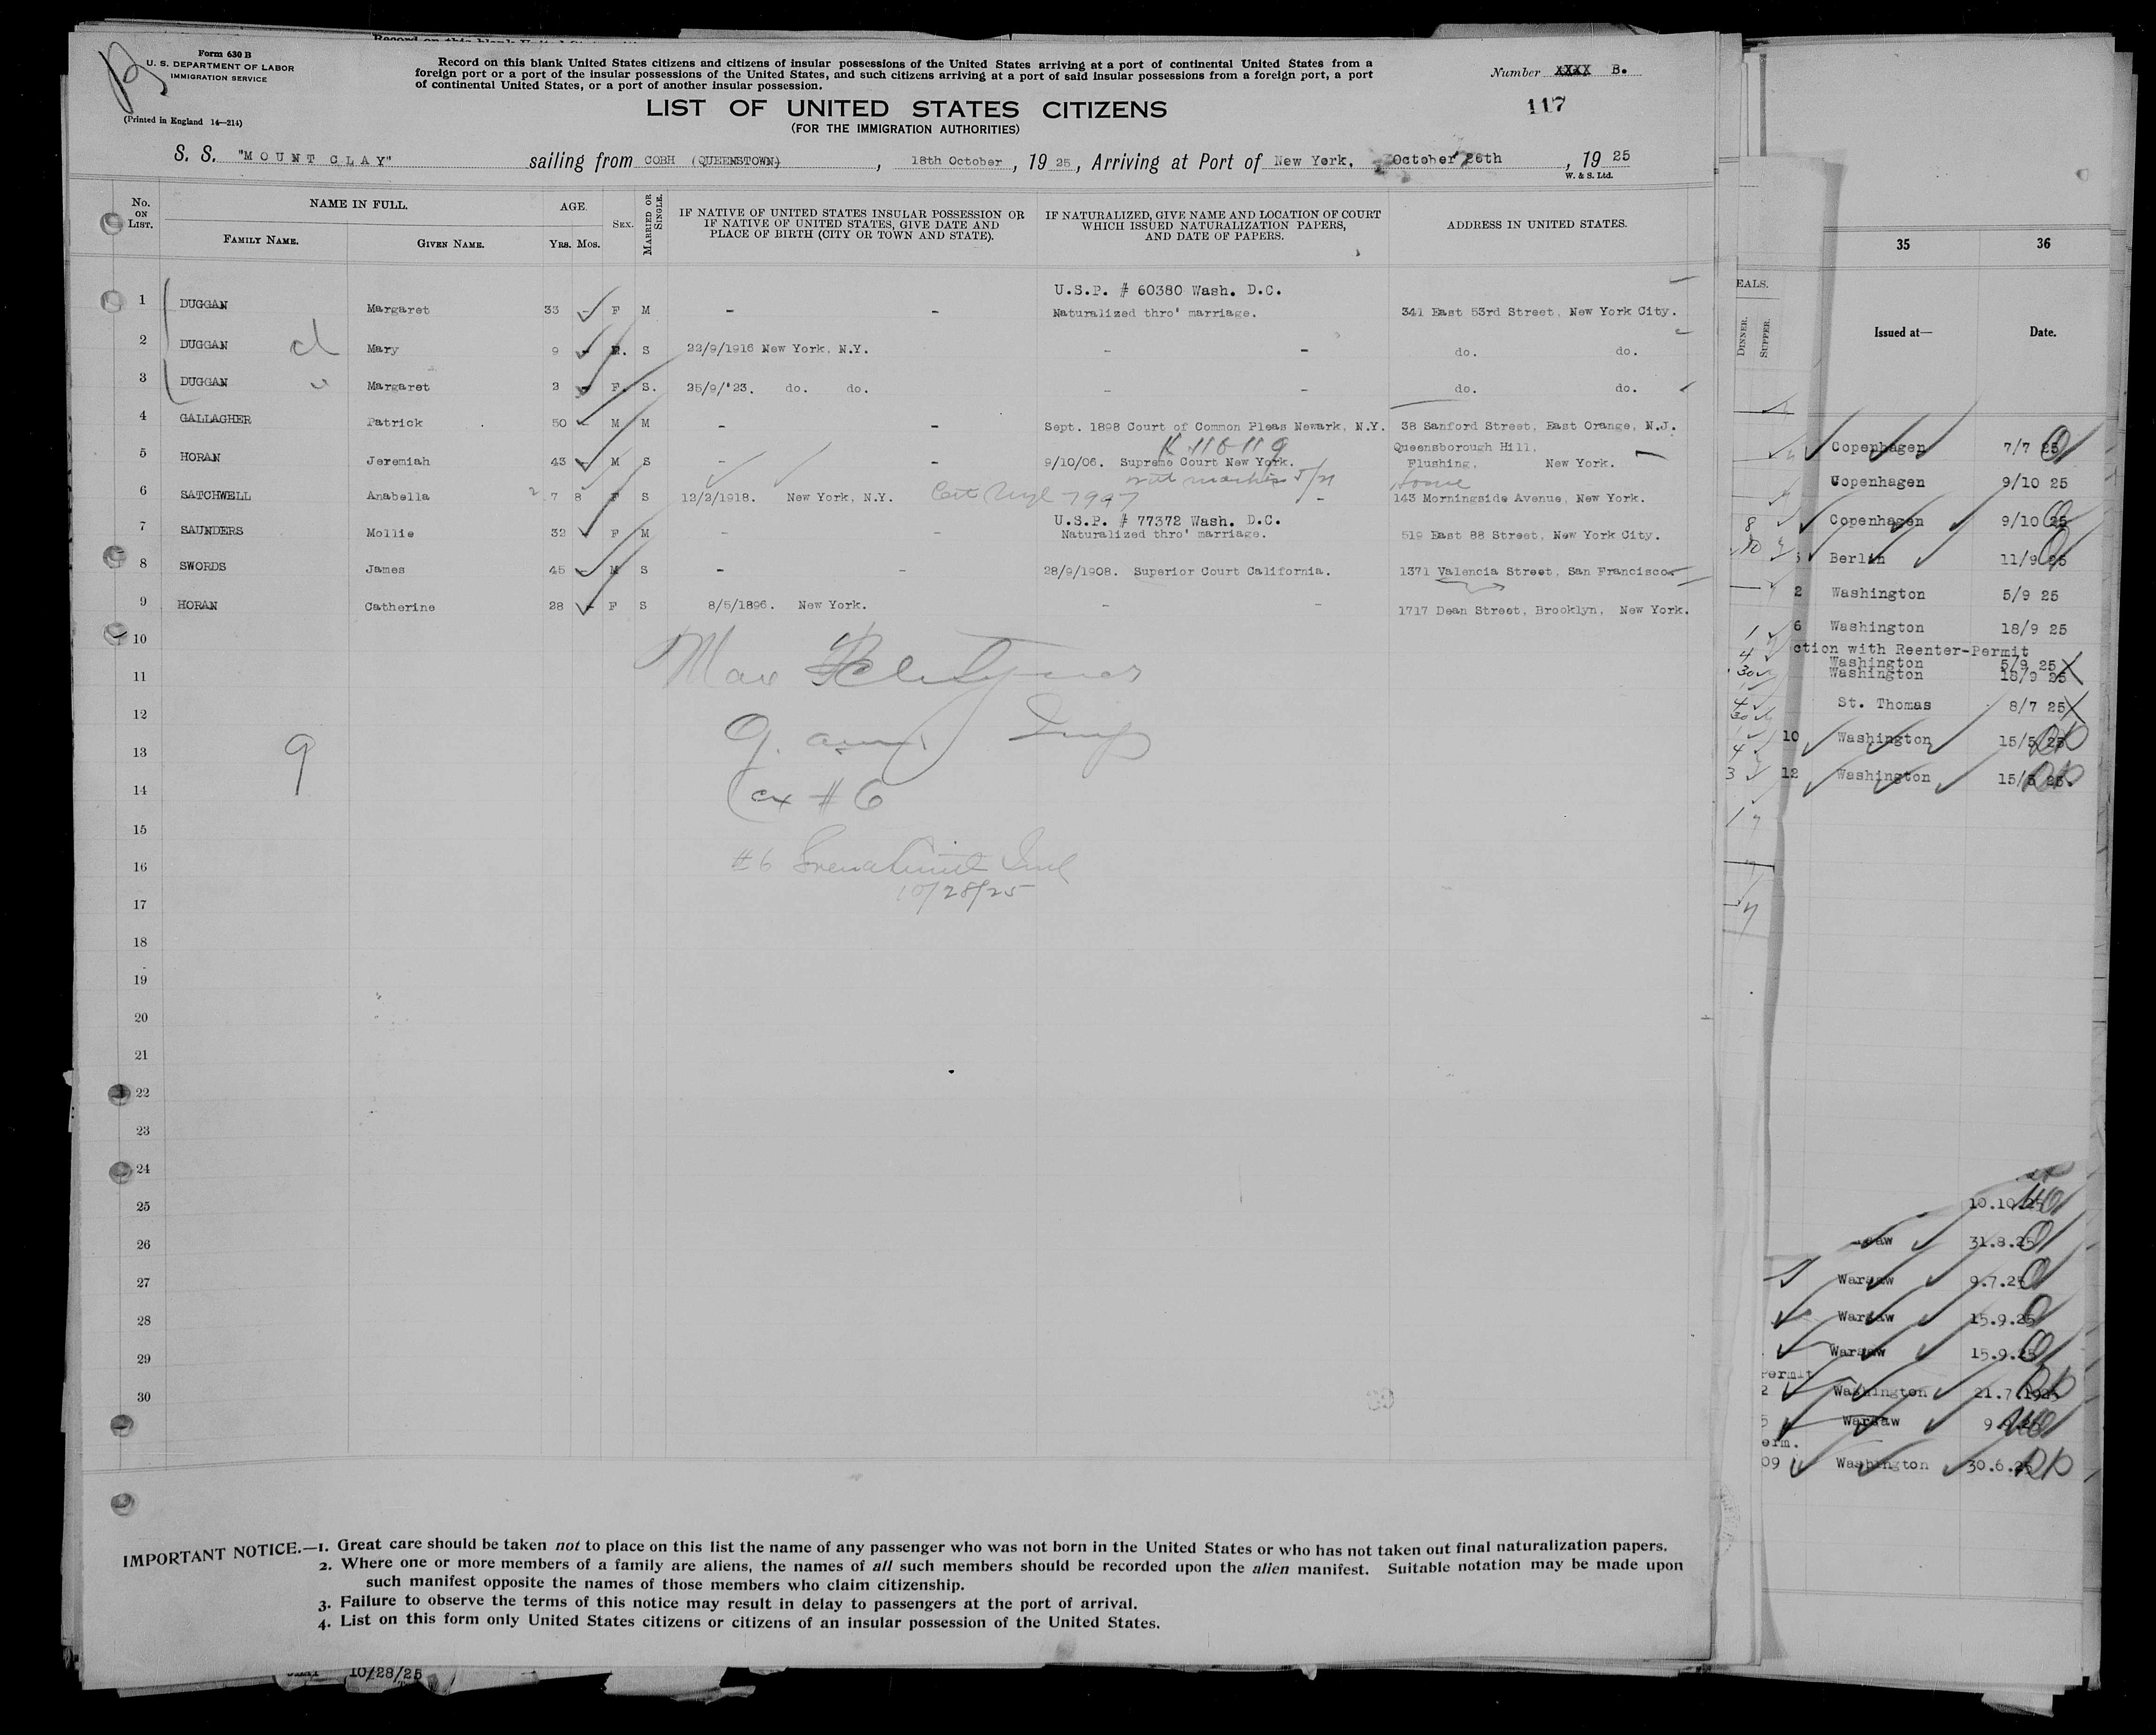 Form 630 B
U. S. DEPARTMENT OF LABOR
IMMIGRATION SERVICE
(Printed in England 14—214)
Record on this blank United States citizens and citizens of insular possessions of the United States arriving at a port of continental United States from a
foreign port or a port of the insular possessions of the United States, and such citizens arriving at a port of said insular possessions from a foreign port, a port
of continental United States, or a port of another insular possession.
Number XXXX B.
117
LIST OF UNITED STATES CITIZENS
(FOR THE IMMIGRATION AUTHORITIES)
S. S. "MOUNT CLAY" sailing from COBH (QUEENSTOWN), 18th October, 1925, Arriving at Port of New York, October 26th, 1925
W. & S. Ltd.
No. ON LIST. NAME IN FULL. FAMILY NAME. GIVEN NAME. AGE. YRS. MOS. SEX. MARRIED OR SINGLE. IF NATIVE OF UNITED STATES INSULAR POSSESSION OR IF NATIVE OF UNITED STATES, GIVE DATE AND PLACE OF BIRTH (CITY OR TOWN AND STATE). IF NATURALIZED, GIVE NAME AND LOCATION OF COURT WHICH ISSUED NATURALIZATION PAPERS, AND DATE OF PAPERS. ADDRESS IN UNITED STATES.
U.S.P. # 60380 Wash. D.C.
1 DUGGAN Margaret 33 - F M - - Naturalized thro' marriage. 341 East 53rd Street, New York City.
2 DUGGAN Mary 9 - F. S 22/9/1916 New York, N.Y. - - do. do.
3 DUGGAN Margaret 2 - F. S. 25/9/'23. do. do. - - do. do.
4 GALLAGHER Patrick 50 - M M - - Sept. 1898 Court of Common Pleas Newark, N.Y. 38 Sanford Street, East Orange, N.J.
K 116119
Queensborough Hill,
5 HORAN Jeremiah 43 - M S - - 9/10/06. Supreme Court New York. Flushing, New York.
6 SATCHWELL Anabella 7 8 F S 12/2/1918. New York, N.Y. 7997 - 143 Morningside Avenue, New York.
U.S.P. # 77372 Wash. D.C.
7 SAUNDERS Mollie 32 F M - - Naturalized thro' marriage. 519 East 88 Street, New York City.
8 SWORDS James 45 - M S - - 28/9/1908. Superior Court California. 1371 Valencia Street, San Francisco.
9 HORAN Catherine 28 - F S 8/5/1896. New York. - - 1717 Dean Street, Brooklyn, New York.
10
11 Max
12
13 9
14 ex # 6
15
16 #6
10/28/25
17
18
19
20
21
22
23
24
25
26
27
28
29
30
IMPORTANT NOTICE.—1. Great care should be taken not to place on this list the name of any passenger who was not born in the United States or who has not taken out final naturalization papers.
2. Where one or more members of a family are aliens, the names of all such members should be recorded upon the alien manifest. Suitable notation may be made upon
such manifest opposite the names of those members who claim citizenship.
3. Failure to observe the terms of this notice may result in delay to passengers at the port of arrival.
4. List on this form only United States citizens or citizens of an insular possession of the United States.
10/28/25
EALS.
DINNER. SUPPER.
35 36
Issued at— Date.
Copenhagen 7/7 25
Copenhagen 9/10 25
Copenhagen 9/10 25
Berlin 11/9 25
2 Washington 5/9 25
6 Washington 18/9 25
ction with Reenter-Permit
Washington 5/9 25
Washington 18/9 25
St. Thomas 8/7 25
10 Washington 15/5 25
12 Washington 15/5 25.
10.10.25
saw 31.8.25
Warsaw 9.7.25
Warsaw 15.9.25
Warsaw 15.9.25
ermit
2 Washington 21.7.1925
5 Warsaw 9.9.25
erm.
09 Washington 30.6.25